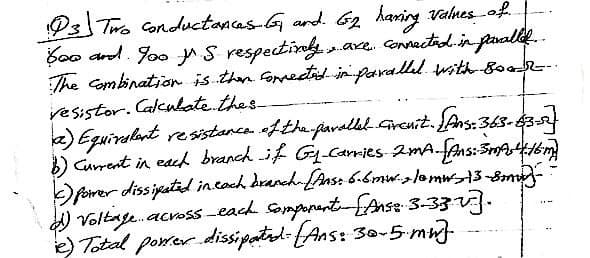 Q3) Two conductances G1 and G2 having values of
600 and 900 µ S respectively, are connected in parallel.
The combination is then connected in parallel with 800 Ω
resistor. Calculate the:
a) Equivalent resistance of the parallel circuit. [Ans: 363.63 Ω]
b) Current in each branch if G1 carries 2mA. [Ans: 3mA, 4.16m]
c) power dissipated in each branch [Ans: 6.6mw, 10mw, 13.8mw]
d) Voltage across each component [Ans: 3.33 V].
e) Total power dissipated [Ans: 30.5 mw]